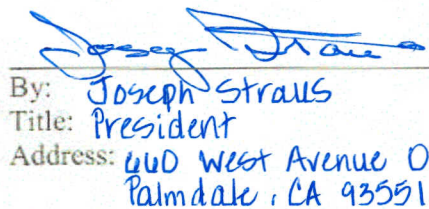 Joseph Straus
By: Joseph Straus
Title: President
Address: 660 West Avenue O
Palmdale, CA 93551